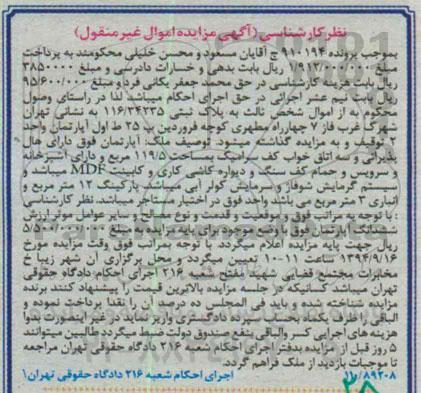 نظر کارشناسی (آگهی مزایده اموال غیر منقول)
بموجب پرونده ۹۱۰۱۹۴ ج آقایان مسعود و محسن خلیلی محکومند به پرداخت
مبلغ ۱/۹۱۲/۰۰۰/۰۰۰ ریال بابت بدهی و خسارات دادرسی و مبلغ ۳۸۵۰۰۰۰
ریال بابت هزینه کارشناسی در حق محمد جعفر یکانی فرد و مبلغ ۹۵/۶۰۰/۰۰۰
ریال بابت نیم عشر اجرائی در حق اجرای احکام میباشد لذا در راستای وصول
محکوم به از اموال شخص ثالث به پلاک ثبتی ۱۱۶/۲۴۲۳۵ به نشانی تهران
شهرک غرب فاز ۷ چهارراه مطهری کوچه فروردین پ ۲۵ ط اول آپارتمان واحد
توقیف و به مزایده گذاشته میشود. توصیف ملک: آپارتمان فوق دارای هال
پذیرائی و سه اتاق خواب کف سرامیک بمساحت ۱۱۹/۵ مربع و دارای آشپزخانه
و سرویس و حمام کف سنگ و دیواره کاشی کاری و کابینت MDF میباشد و
سیستم گرمایش شوفاژ و سرمایش کولر آبی میباشد پارکینگ ۱۲ متر مربع و
انباری ۳ متر مربع می باشد واحد فوق در اختیار مستاجر میباشد. نظر کارشناسی
: با توجه به مراتب فوق و موقعیت و قدمت و نوع مصالح و سایر عوامل موثر ارزش
ششدانگ آپارتمان فوق با وضع موجود برای پایه مزایده به مبلغ
ریال جهت پایه مزایده اعلام میگردد با توجه بمراتب فوق وقت مزایده مورخ
۱۳۹۴/۹/۱۶ ساعت ۱۱-۱۰ تعیین میگردد و محل برگزاری آن شهر زیبا خ
مخابرات مجتمع قضایی شهید مفتح شعبه ۲۱۶ اجرای احکام دادگاه حقوقی
تهران میباشد کسانیکه در جلسه مزایده بالاترین قیمت را پیشنهاد کنند برنده
مزایده شناخته شده و باید فی المجلس ده درصد آن را نقدا پرداخت نموده و
الباقی را ظرف یکماه بحساب سپرده دادگستری واریز نماید در غیر اینصورت بدوا
هزینه های اجرایی کسر والباقی بنفع صندوق دولت ضبط میگردد طالبین میتوانند
۵ روز قبل از مزایده بدفتر اجرای احکام شعبه ۲۱۶ دادگاه حقوقی تهران مراجعه
تا موجبات بازدید از ملک فراهم گردد.
۱۱۰/۸۹۲۰۸ اجرای احکام شعبه ۲۱۶ دادگاه حقوقی تهران\